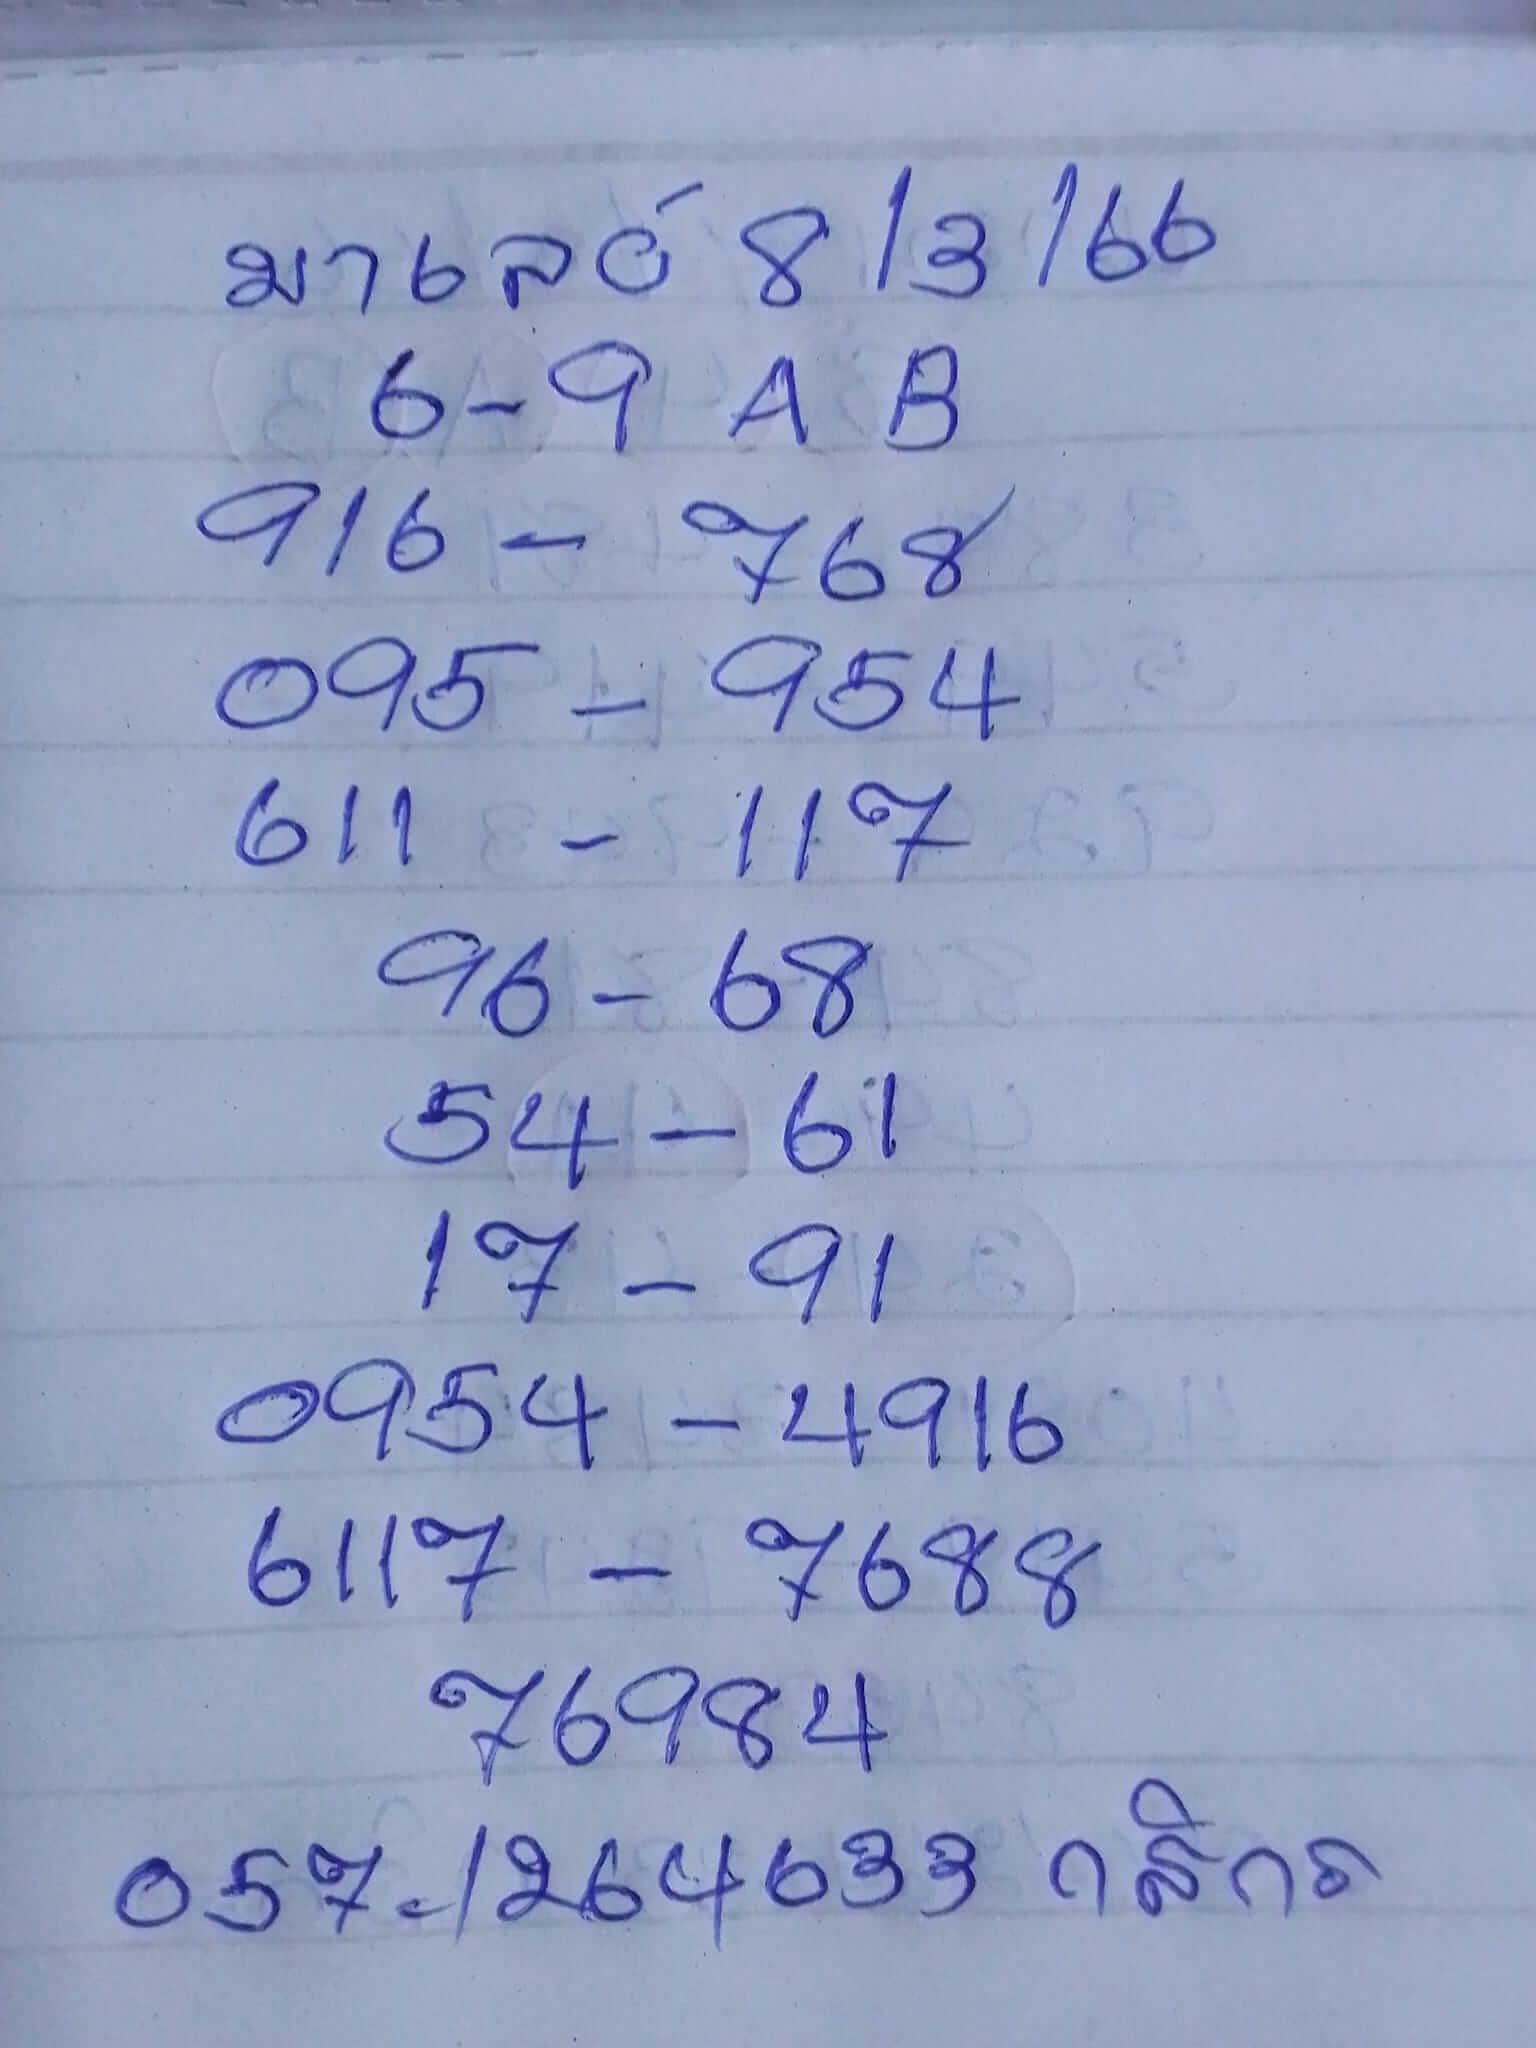 มาเลย์ 8/3/66
6-9 A B
916 - 768
095 - 954
611 - 117
96 - 68
54 - 61
17 - 91
0954 - 4916
6117 - 7688
76984
057-1264633 กสิกร